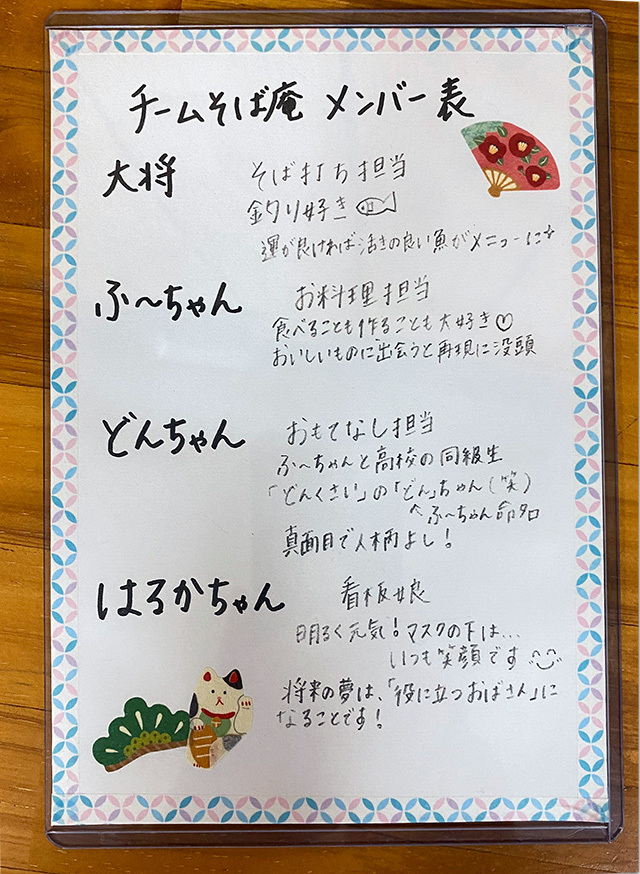 チームそば庵 メンバー表
大将
そば打ち担当
釣り好き
運が良ければ活きの良い魚がメニューに☆
ふ〜ちゃん
お料理担当
食べることも作ることも大好き♡
おいしいものに出会うと再現に没頭
どんちゃん
おもてなし担当
ふ〜ちゃんと高校の同級生
「どんくさい」の「どん」ちゃん(笑)
^ふ〜ちゃん命名
真面目で人柄よし!
はるかちゃん
看板娘
明るく元気!マスクの下は...
いつも笑顔です
将来の夢は、「役に立つおばさん」に
なることです!